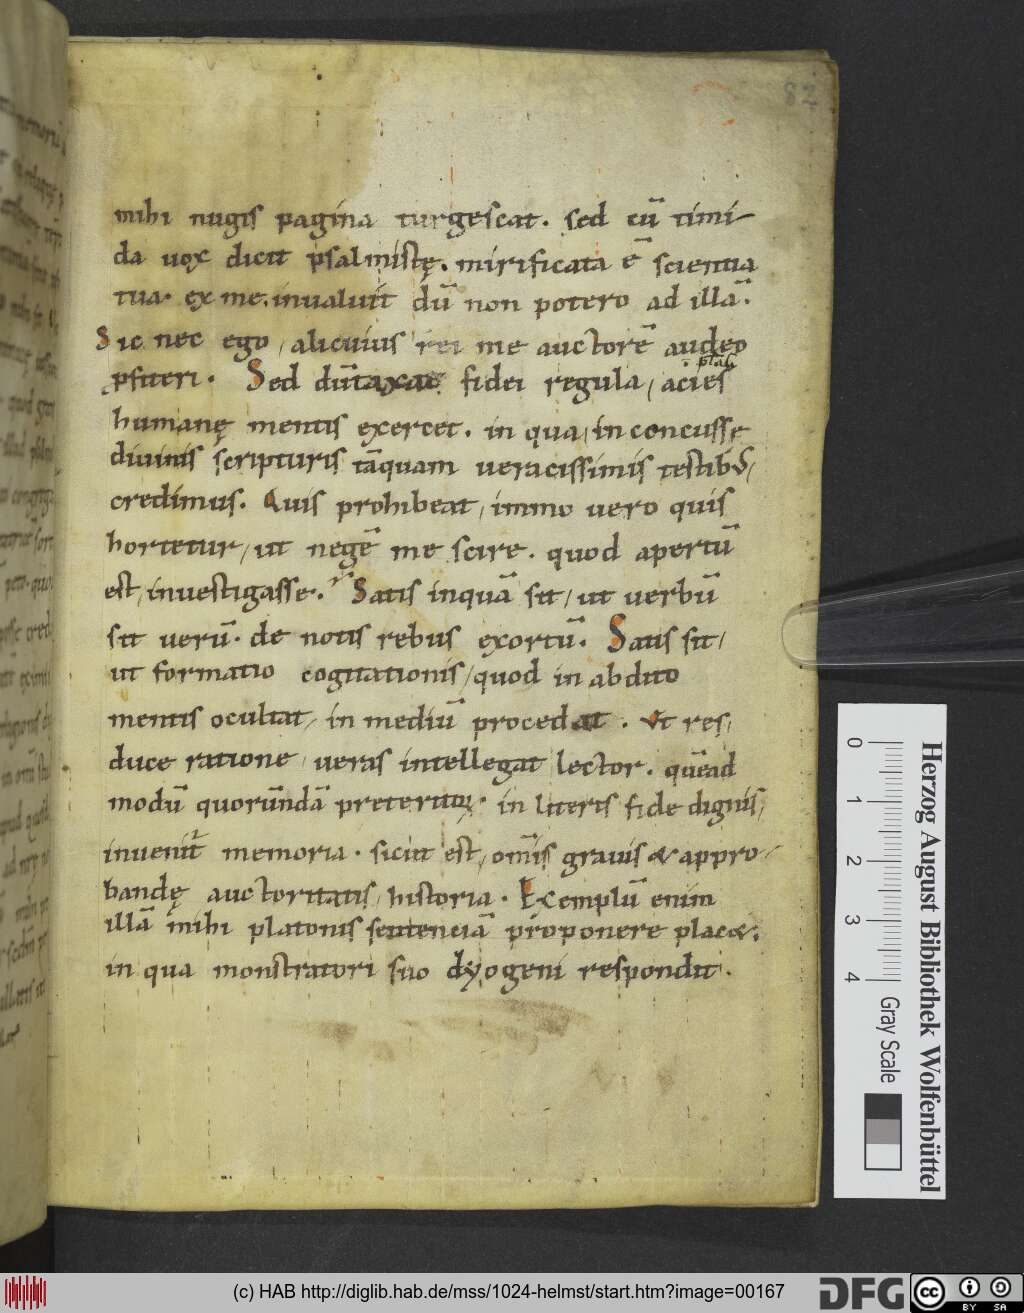 82
mihi nugis pagina turgescat. sed cū timi-
da uox dicit psalmistę. mirificata ē scientia
tua. ex me. inualuit dū non potero ad illā.
Sic nec ego, alicuius rei me auctorē audeo
pfiteri. Sed dūtaxat fidei regula, acies
humanę mentis exercet. in qua, inconcusse
diuinis scripturis tāquam ueracissimis testib;,
credimus. Quis prohibeat, immo uero quis
hortetur, ut negē me scire. quod apertū
est, inuestigasse. Satis inquā sit, ut uerbū
sit uerū. de notis rebus exortū. Satis sit,
ut formatio cogitationis, quod in abdito
mentis ocultat, in mediū procedat. Ut res,
duce ratione, ueras intellegat lector. quēad
modū quorūndā preteritoꝝ. in literis fide dignis,
inuenit memoria. sicut est, om̄is grauis & appro-
bandę auctoritatis, historia. Exemplū enim
illā mihi platonis sentenciā proponere placet.
in qua monstratori suo dyogeni respondit.
Herzog August Bibliothek Wolfenbüttel
0 1 2 3 4 Gray Scale
(c) HAB http://diglib.hab.de/mss/1024-helmst/start.htm?image=00167
DFG
cc BY SA